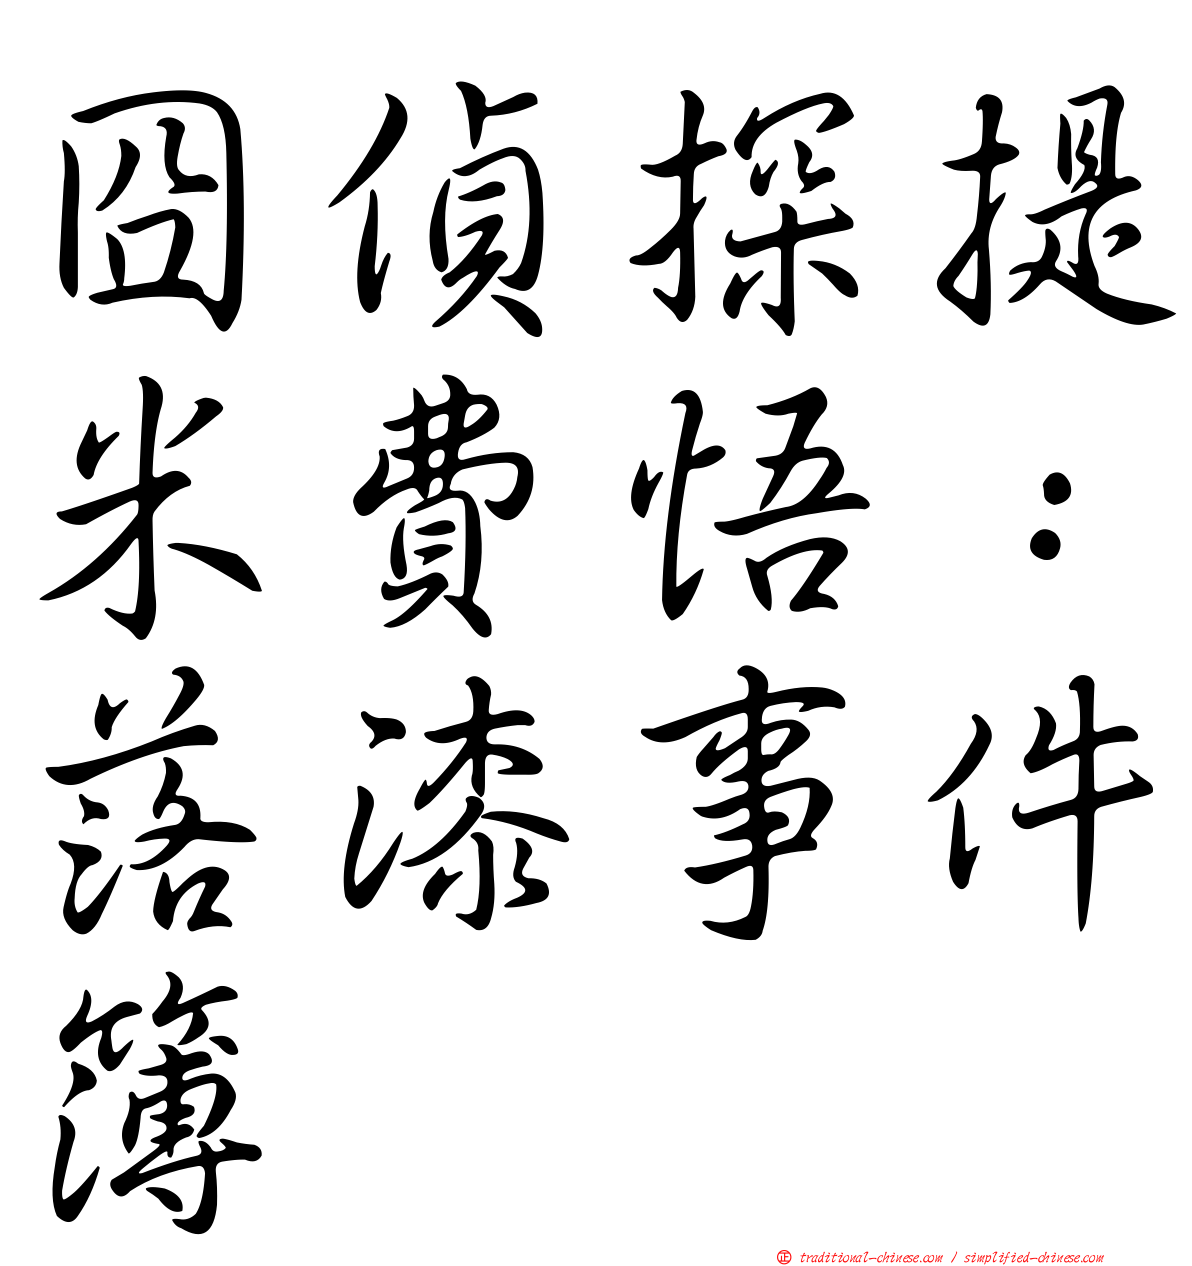 囧偵探提
米費悟：
落漆事件
簿
㊣ traditional-chinese.com / simplified-chinese.com